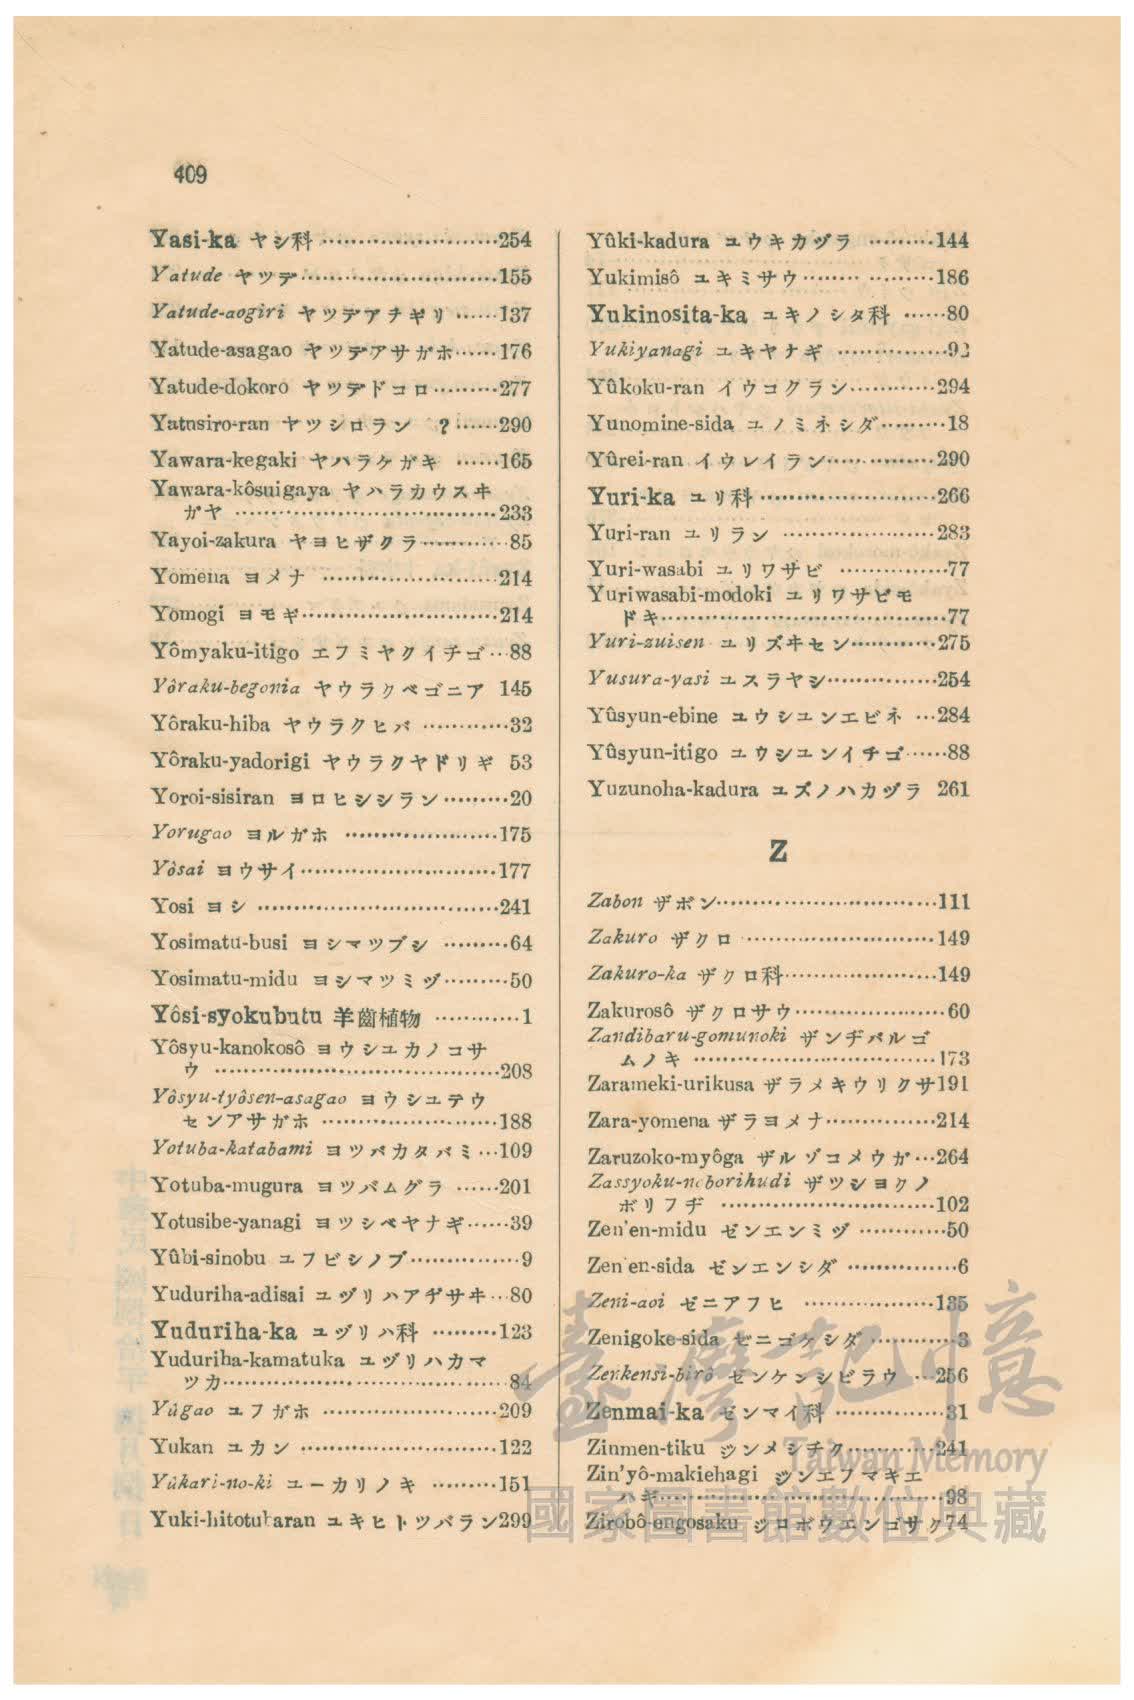 409
Yasi-ka ヤシ科 ························254
Yatude ヤツデ···························155
Yatude-aogiri ヤツデアヲギリ ······137
Yatude-asagao ヤツデアサガホ······176
Yatude-dokoro ヤツデドコロ·········277
Yatusiro-ran ヤツシロラン ?······290
Yawara-kegaki ヤハラケガキ ······165
Yawara-kôsuigaya ヤハラカウスヰ
ガヤ ····································233
Yayoi-zakura ヤヨヒザクラ············85
Yomena ヨメナ ························214
Yomogi ヨモギ···························214
Yômyaku-itigo エフミヤクイチゴ···88
Yôraku-begonia ヤウラクベゴニア 145
Yôraku-hiba ヤウラクヒバ ············32
Yôraku-yadorigi ヤウラクヤドリギ 53
Yoroi-sisiran ヨロヒシシラン·········20
Yorugao ヨルガホ ·····················175
Yôsai ヨウサイ···························177
Yosi ヨシ ·································241
Yosimatu-busi ヨシマツブシ ·········64
Yosimatu-midu ヨシマツミヅ·········50
Yôsi-syokubutu 羊齒植物 ············1
Yôsyu-kanokosô ヨウシユカノコサ
ウ ·······································208
Yôsyu-tyôsen-asagao ヨウシユテウ
センアサガホ ························188
Yotuba-katabami ヨツバカタバミ···109
Yotuba-mugura ヨツバムグラ ······201
Yotusibe-yanagi ヨツシベヤナギ······39
Yûbi-sinobu ユフビシノブ···············9
Yuduriha-adisai ユヅリハアヂサヰ···80
Yuduriha-ka ユヅリハ科 ·········123
Yuduriha-kamatuka ユヅリハカマ
ツカ·······································84
Yûgao ユフガホ ························209
Yukan ユカン ···························122
Yûkari-no-ki ユーカリノキ ·········151
Yuki-hitotubaran ユキヒトツバラン299
Yûki-kadura ユウキカヅラ ·········144
Yukimisô ユキミサウ········ ·········186
Yukinosita-ka ユキノシタ科 ······80
Yukiyanagi ユキヤナギ ···············92
Yûkoku-ran イウコクラン············294
Yunomine-sida ユノミネシダ·········18
Yûrei-ran イウレイラン···············290
Yuri-ka ユリ科························266
Yuri-ran ユリラン ·····················283
Yuri-wasabi ユリワサビ ···············77
Yuriwasabi-modoki ユリワサビモ
ドキ·······································77
Yuri-zuisen ユリズヰセン············275
Yusura-yasi ユスラヤシ···············254
Yûsyun-ebine ユウシユンエビネ ···284
Yûsyun-itigo ユウシユンイチゴ······88
Yuzunoha-kadura ユズノハカヅラ 261
Z
Zabon ザボン······························111
Zakuro ザクロ ···························149
Zakuro-ka ザクロ科·····················149
Zakurosô ザクロサウ·····················60
Zandibaru-gomunoki ザンヂバルゴ
ムノキ ·································173
Zarameki-urikusa ザラメキウリクサ191
Zara-yomena ザラヨメナ···············214
Zaruzoko-myôga ザルゾコメウガ···264
Zassyoku-noborihudi ザツシヨクノ
ボリフヂ ······························102
Zen'en-midu ゼンエンミヅ ············50
Zen'en-sida ゼンエンシダ ···············6
Zeni-aoi ゼニアフヒ ··················135
Zenigoke-sida ゼニゴケシダ············3
Zenkensi-birô ゼンケンシビラウ ···256
Zenmai-ka ゼンマイ科 ···············31
Zinmen-tiku ジンメンチク············241
Zin'yô-makiehagi ジンエフマキエ
ハギ·······································98
Zirobô-engosaku ジロボウエンゴサク74
臺灣記憶
Taiwan Memory
國家圖書館數位典藏